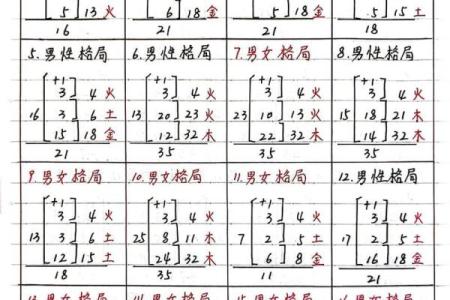 5 13 火 6 18 金 5 15 土
16 21 21 18
5.男性格局 6.男性格局 7.男女格局 8.男性格局
+1 +1 +1 +1
3 4 火 3 4 火 3 4 火 3 4 火
16 3 6 土 13 20 23 火 23 10 13 火 15 18 21 木
15 18 金 12 32 木 22 32 木 14 32 木
21 35 35 35
9.男女格局 10.男女格局 11.男女格局 12.男性格局
+1 +1 +1 +1
3 4 火 3 4 火 3 4 火 3 4 火
13 3 6 土 25 8 11 木 7 2 5 土 17 2 5 土
12 15 土 24 32 木 6 8 金 16 18 金
18 35 11 21
男女格局 男女格局 男女格局 男女格局